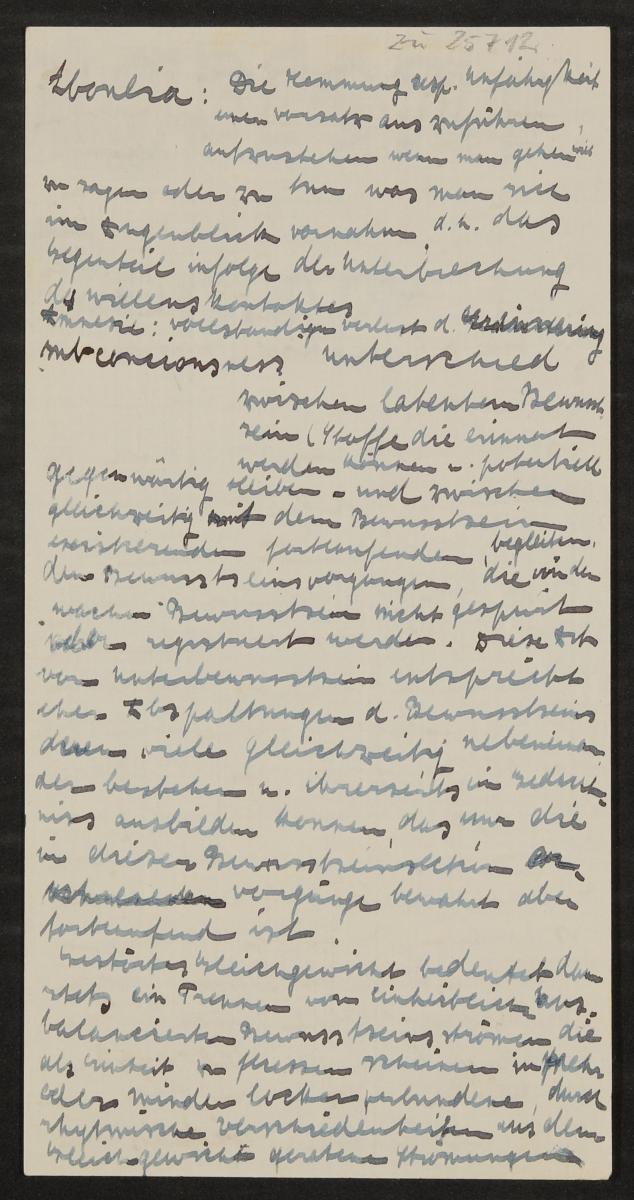 zu 25712
Aboulia: Die Hemmung resp. Unfähigkeit
einen Vorsatz auszuführen,
aufzustehen wenn man gehen will
zu sagen oder zu tun was man sich
im Augenblick vornahm, d.h. das
Gegenteil infolge der Unterbrechung
des Willenskontaktes
Amnesie: vollständiger Verlust d. Erinnerung
subconciousness Unterschied
zwischen latentem Bewusst-
sein (Stoffe die erinnert
werden können u. potentiell
gegenwärtig bleiben - und zwischen
gleichzeitig mit dem Bewusstsein
existierenden fortlaufenden, begleiten-
den Bewusstseinsvorgängen, die von dem
wachen Bewusstsein nicht gespürt
oder registriert werden. Diese Art
von Unterbewusstsein entspricht
eher Abspaltungen d. Bewusstseins
deren viele gleichzeitig nebeneinan-
der bestehen u. ihrerseits ein Gedächt-
niss ausbilden können, das nur die
in dieser Bewusstseinssektion
Vorgänge bewahrt aber
fortlaufend ist.
Gestörtes Gleichgewicht bedeutet dann
stets ein Trennen von einheitlich aus-
balancierten Bewusstseinsströmen die
als Einheit zu fliessen scheinen in mehr
oder minder locker verbundene, durch
rhytmische Verschiedenheiten aus dem
Gleichgewicht geratene Strömungen